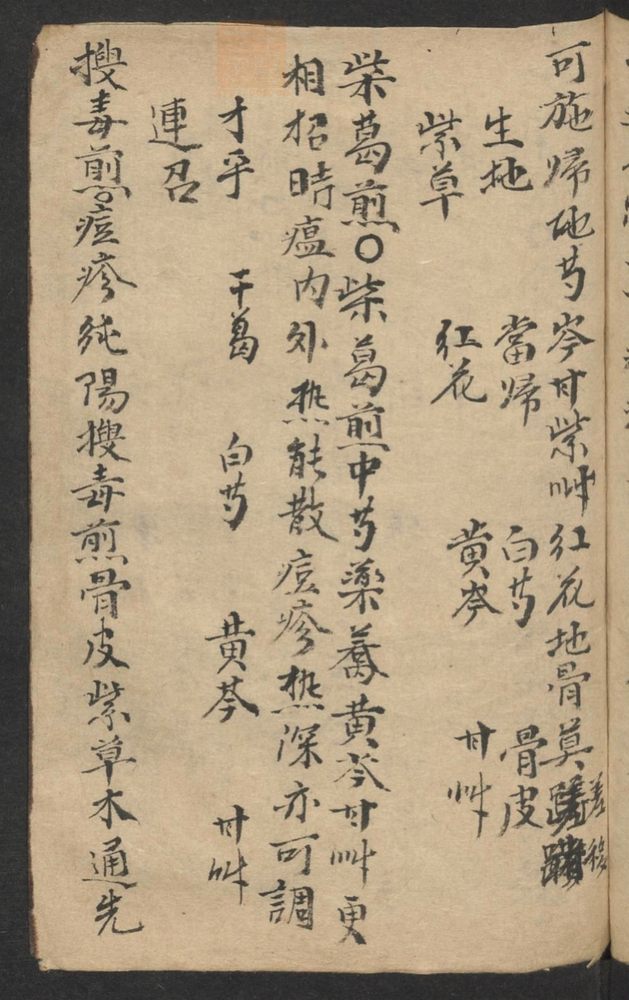 可施歸地芍岑甘紫艸紅花地骨莫
生地 當歸 白芍 骨皮
紫草 紅花 黄岑 甘艸
柴葛煎○柴葛煎中芍藥蕎黄芩甘艸更
相招時瘟内外热能散痘疹热深亦可調
才乎 干葛 白芍 黄芩 甘艸
連召
搜毒煎○痘疹純陽搜毒煎骨皮紫草木通先